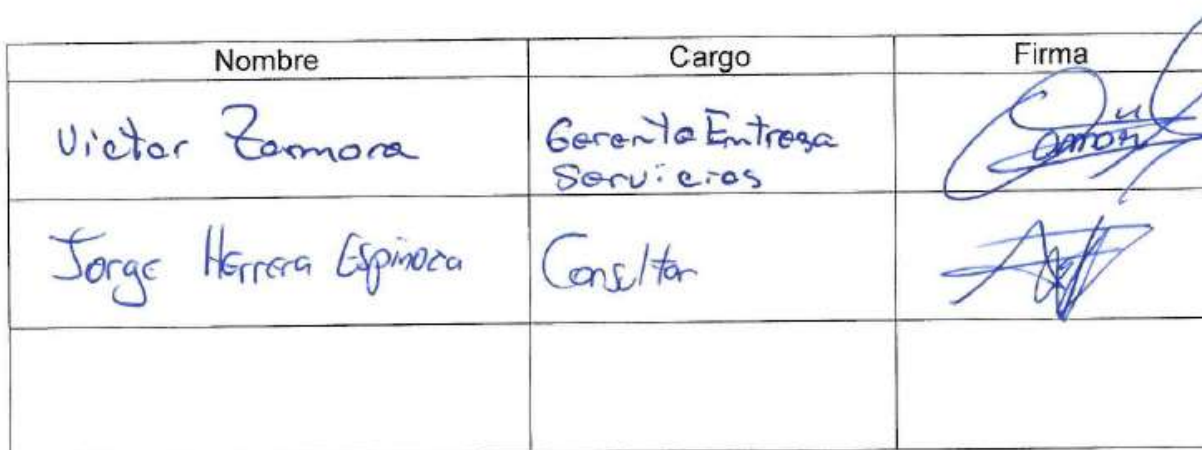 Nombre Cargo Firma
Victor Zamora Gerente Entrega
Servicios
Jorge Herrera Espinoza Consultor